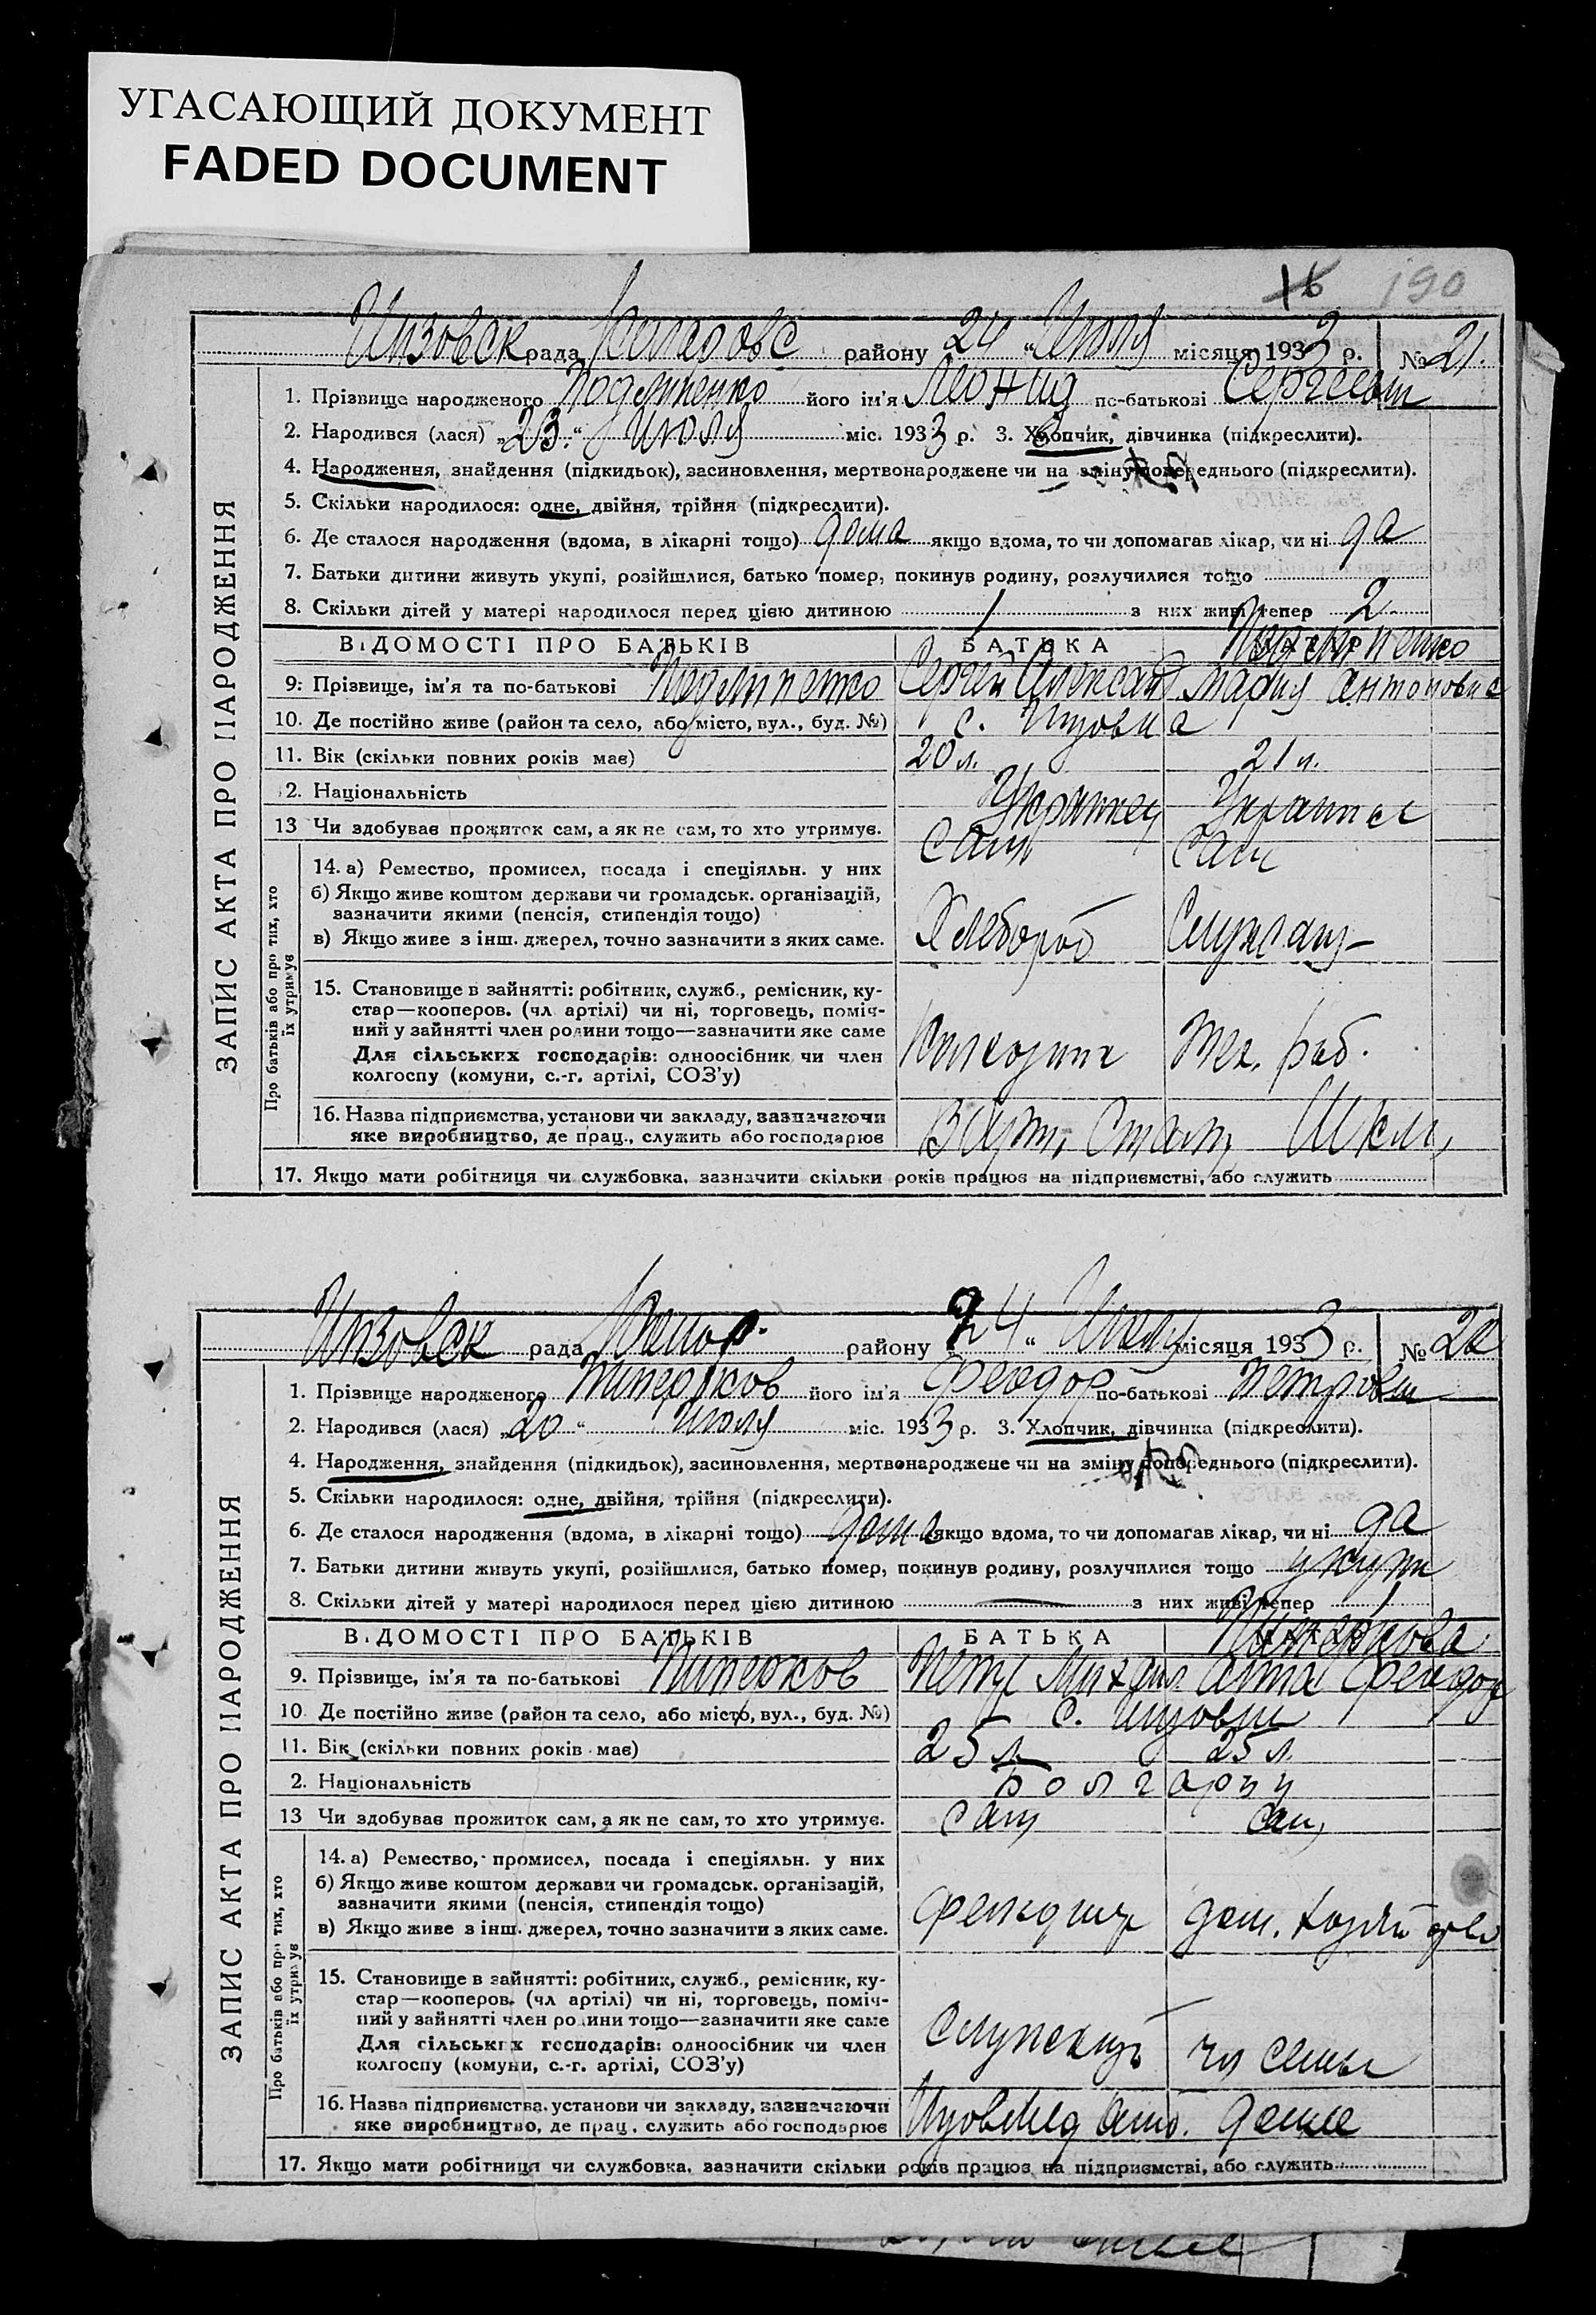 УГАСАЮЩИЙ ДОКУМЕНТ
FADED DOCUMENT
16 190
ЗАПИС АКТА ПРО НАРОДЖЕННЯ
рада району 24 " Июля місяця 1933 р. № 21.
1. Прізвище народженого його ім'я Леонид по-батькові Сергеевич
2. Народився (лася) „23." июля міс. 1933 р. 3. Хлопчик, дівчинка (підкреслити).
4. Народження, знайдення (підкидьок), засиновлення, мертвонароджене чи на зміну попереднього (підкреслити).
5. Скільки народилося: одне, двійня, трійня (підкреслити).
6. Де сталося народження (вдома, в лікарні тощо) дома якщо вдома, то чи допомагав лікар, чи ні да
7. Батьки дитини живуть укупі, розійшлися, батько помер, покинув родину, розлучилися тощо
8. Скільки дітей у матері народилося перед цією дитиною 1 з них живі тепер 2
ВІДОМОСТІ ПРО БАТЬКІВ БАТЬКА
9. Прізвище, ім'я та по-батькові Сергей Александ Мария Антоновна
10. Де постійно живе (район та село, або місто, вул., буд. №) с.
11. Вік (скільки повних років має) 20 л. 21 л.
2. Національність Украинец Украинка
13 Чи здобуває прожиток сам, а як не сам, то хто утримує. Сам Сам
Про батьків або про тих, хто їх утримує
14. а) Ремество, промисел, посада і спеціяльн. у них
б) Якщо живе коштом держави чи громадськ. організацій,
зазначити якими (пенсія, стипендія тощо)
в) Якщо живе з інш. джерел, точно зазначити з яких саме. Хлебороб
15. Становище в зайнятті: робітник, служб., ремісник, ку-
стар—кооперов. (чл артілі) чи ні, торговець, поміч-
ний у зайнятті член родини тощо—зазначити яке саме
Для сільських господарів: одноосібник чи член
колгоспу (комуни, с.-г. артілі, СОЗ'у) Колхозник Тех. раб.
16. Назва підприємства, установи чи закладу, зазначаючи
яке виробництво, де прац., служить або господарює
17. Якщо мати робітниця чи службовка, зазначити скільки років працює на підприємстві, або служить
ЗАПИС АКТА ПРО НАРОДЖЕННЯ
рада району 24 " Июля місяця 1933 р. № 22
1. Прізвище народженого його ім'я Феодор по-батькові Петрович
2. Народився (лася) „20" Июля міс. 1933 р. 3. Хлопчик, дівчинка (підкреслити).
4. Народження, знайдення (підкидьок), засиновлення, мертвонароджене чи на зміну попереднього (підкреслити).
5. Скільки народилося: одне, двійня, трійня (підкреслити).
6. Де сталося народження (вдома, в лікарні тощо) дома якщо вдома, то чи допомагав лікар, чи ні да
7. Батьки дитини живуть укупі, розійшлися, батько помер, покинув родину, розлучилися тощо укупи
8. Скільки дітей у матері народилося перед цією дитиною — з них живі тепер 1
ВІДОМОСТІ ПРО БАТЬКІВ БАТЬКА
9. Прізвище, ім'я та по-батькові Петр Михаил Анна Феодор
10. Де постійно живе (район та село, або місто, вул., буд. №) с.
11. Вік (скільки повних років має) 25 л. 25 л.
2. Національність Болгары
13 Чи здобуває прожиток сам, а як не сам, то хто утримує. Сам Сам
Про батьків або про тих, хто їх утримує
14. а) Ремество, промисел, посада і спеціяльн. у них
б) Якщо живе коштом держави чи громадськ. організацій,
зазначити якими (пенсія, стипендія тощо)
в) Якщо живе з інш. джерел, точно зазначити з яких саме. Фельдшер
15. Становище в зайнятті: робітник, служб., ремісник, ку-
стар—кооперов. (чл артілі) чи ні, торговець, поміч-
ний у зайнятті член родини тощо—зазначити яке саме
Для сільських господарів: одноосібник чи член
колгоспу (комуни, с.-г. артілі, СОЗ'у) Служащ чл семьи
16. Назва підприємства, установи чи закладу, зазначаючи
яке виробництво, де прац., служить або господарює
17. Якщо мати робітниця чи службовка, зазначити скільки років працює на підприємстві, або служить